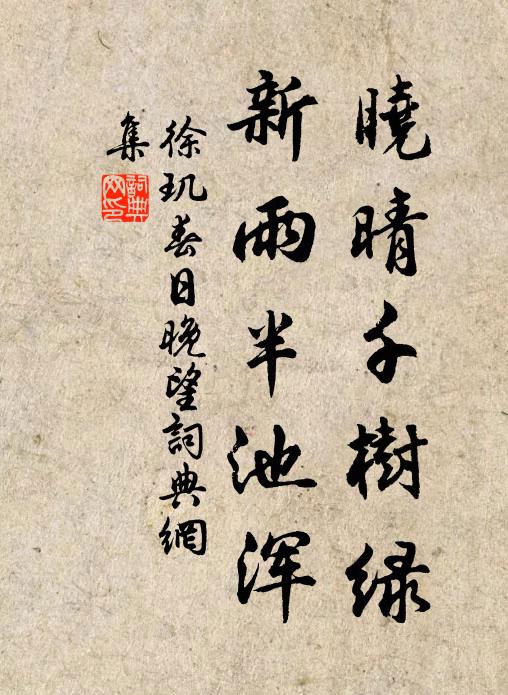 曉晴千樹绿
新雨半池浑
徐玑春日晚望詞典網
集
詞典
网印